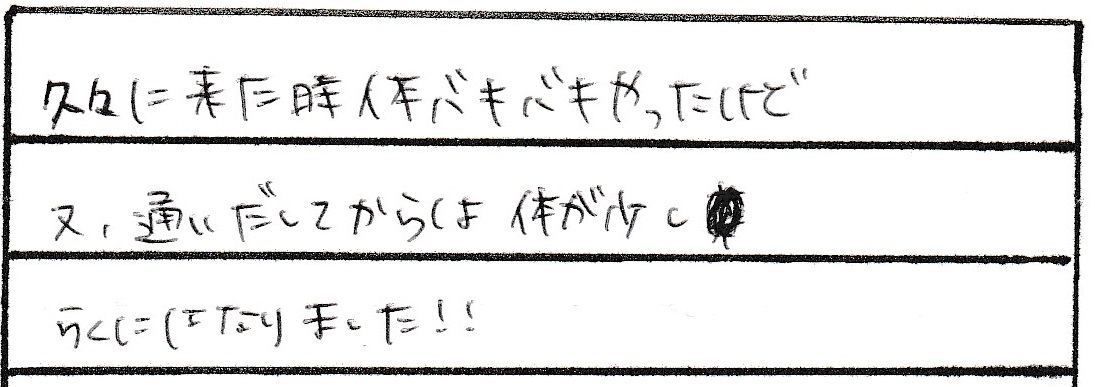 久々に来た時体バキバキやったけど
又、通いだしてからは体が少し
らくにはなりました!!